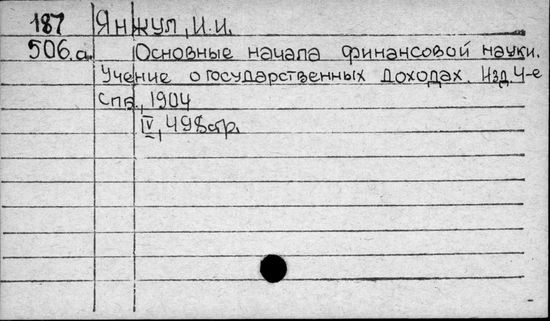 187 Янжул, И.И.
506.а. Основные начала финансовой науки.
Учение о государственных доходах. Изд. 4-е
Спб., 1904
IV, 498 стр.